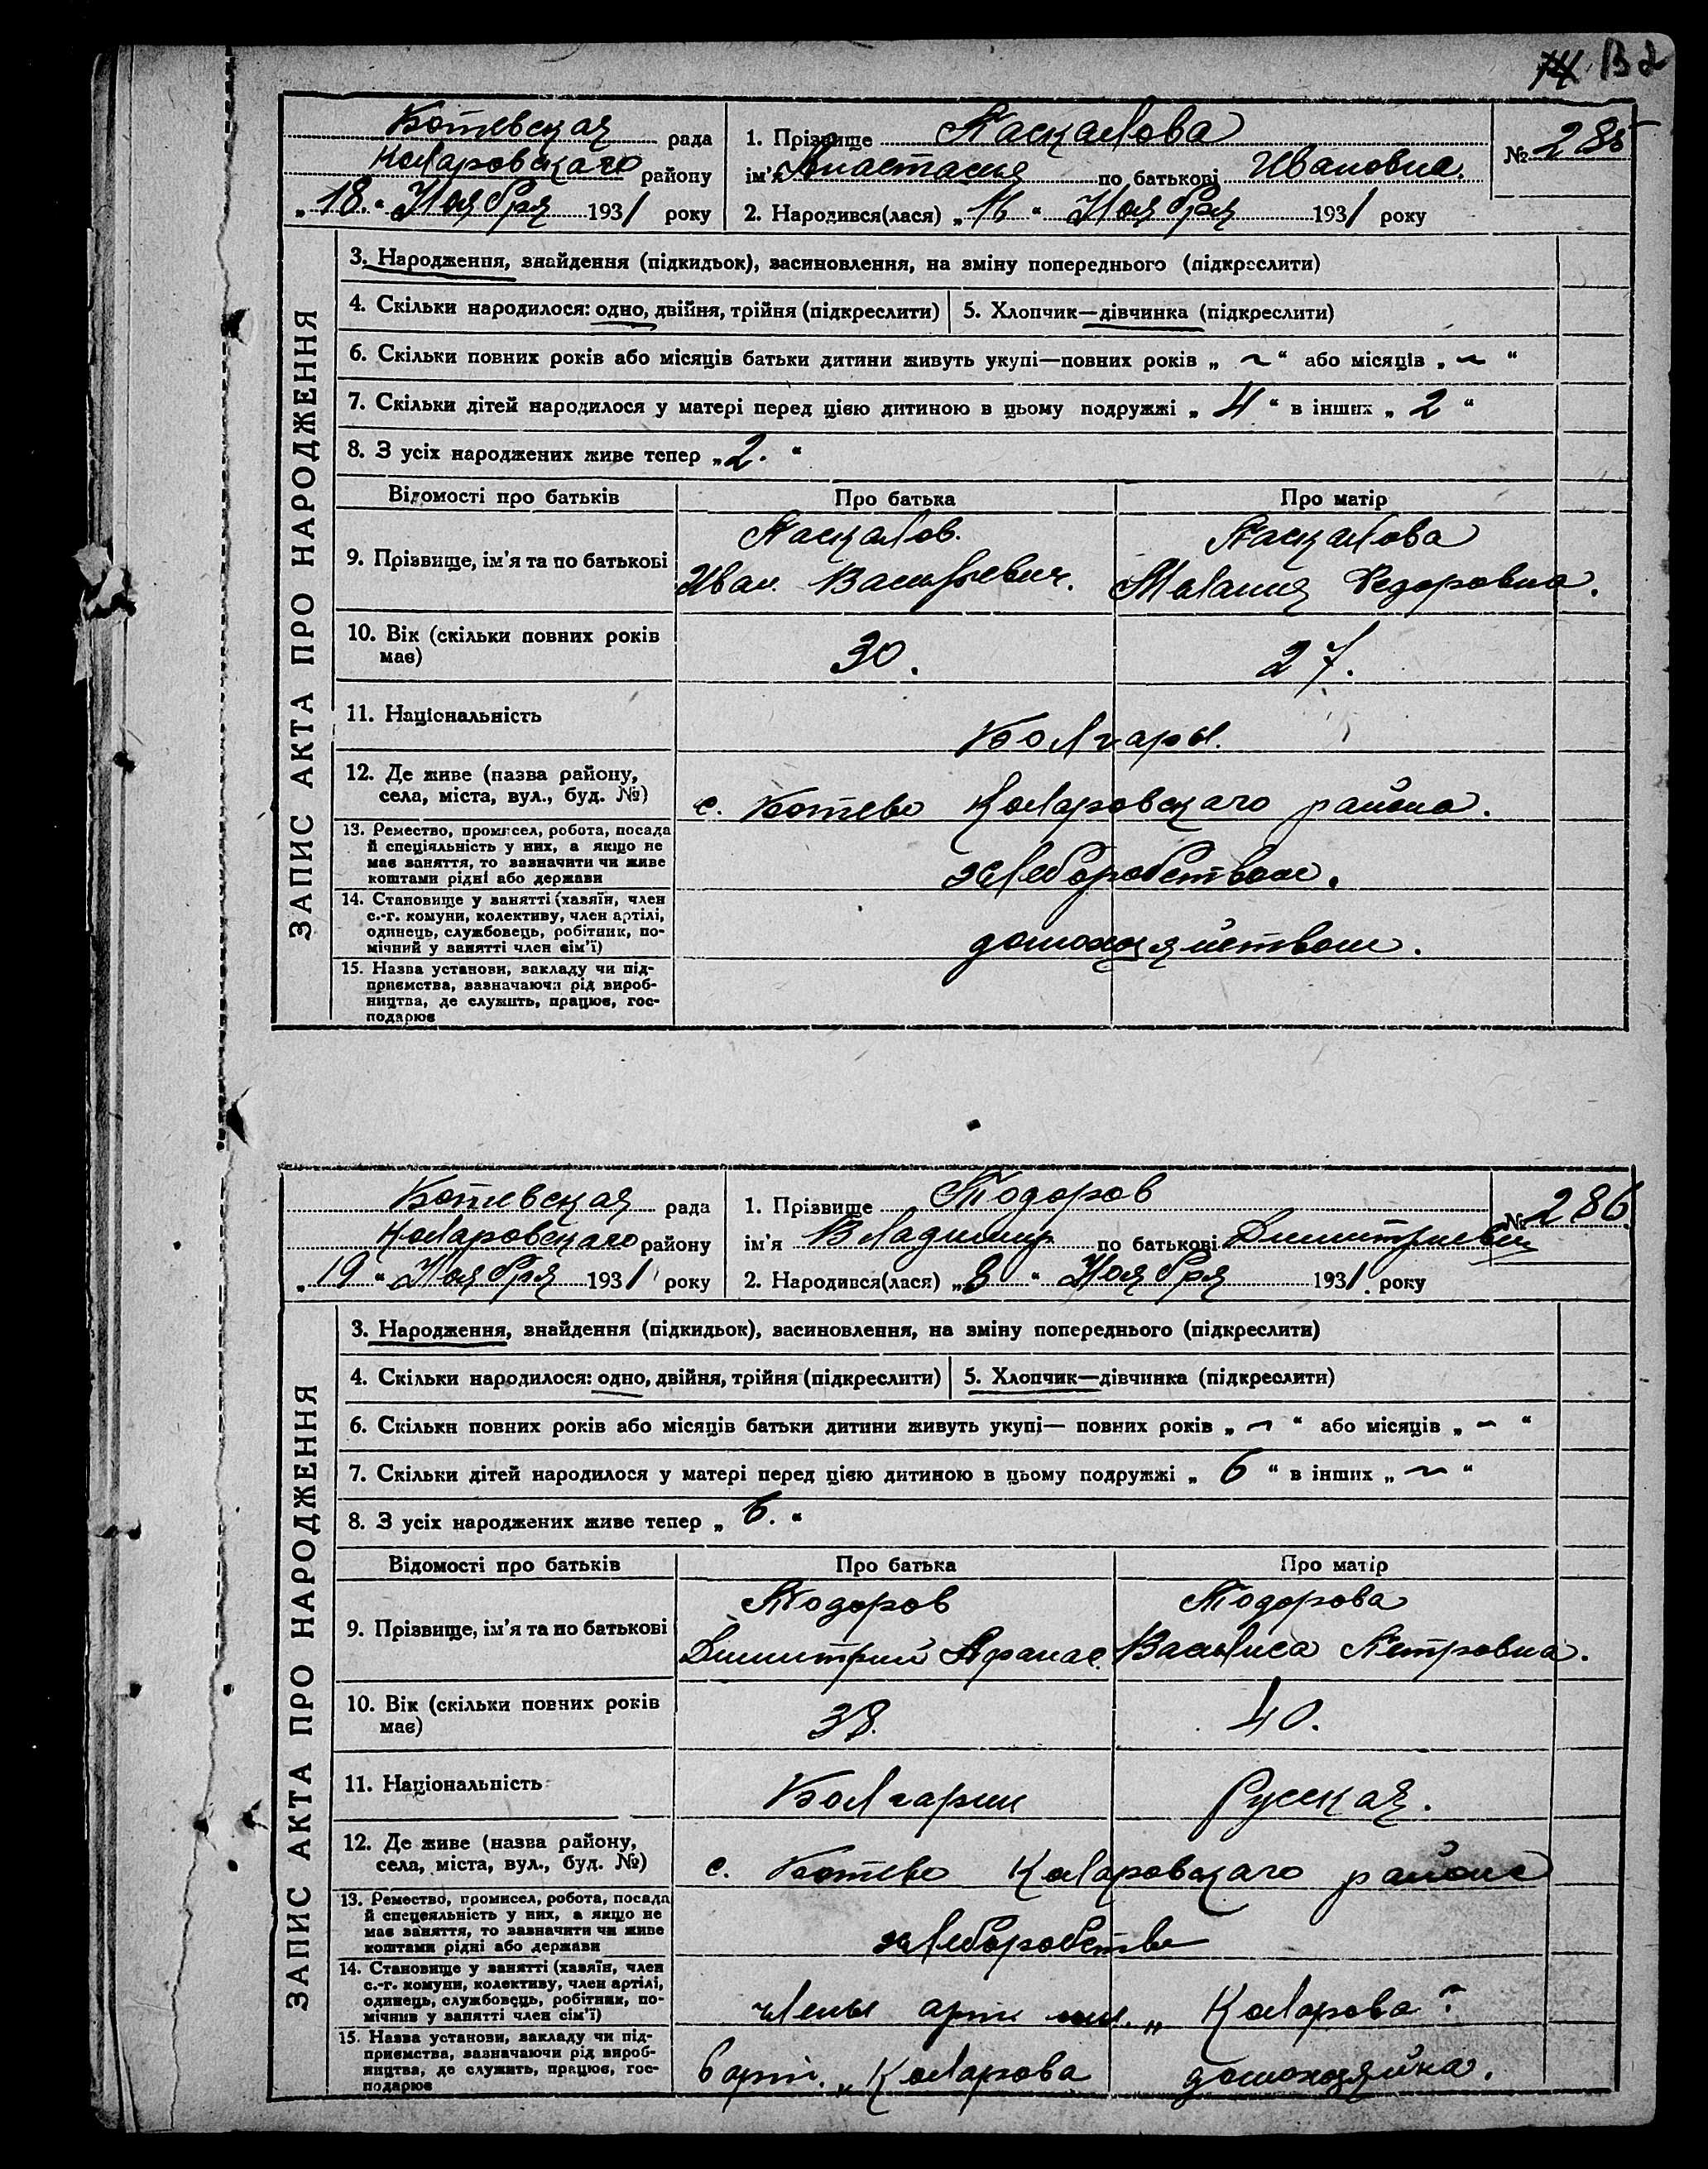 132
Ботевская рада
Коларовскаго району
„18“ Ноября 1931 року
1. Прізвище Паскалова
ім’я Анастасия по батькові Ивановна.
2. Народився(лася) „16“ Ноября 1931 року
№ 285
ЗАПИС АКТА ПРО НАРОДЖЕННЯ
3. Народження, знайдення (підкидьок), засиновлення, на зміну попереднього (підкреслити)
4. Скільки народилося: одно, двійня, трійня (підкреслити)
5. Хлопчик—дівчинка (підкреслити)
6. Скільки повних років або місяців батьки дитини живуть укупі—повних років „ ~ “ або місяців „ ~ “
7. Скільки дітей народилося у матері перед цією дитиною в цьому подружжі „ 4 “ в інших „ 2 “
8. З усіх народжених живе тепер „2. “
Відомості про батьків
Про батька
Про матір
9. Прізвище, ім’я та по батькові
Паскалов.
Иван. Васильевич.
Паскалова
Мелания Федоровна.
10. Вік (скільки повних років
має)
30.
27.
11. Національність
Болгары.
12. Де живе (назва району,
села, міста, вул., буд. №)
с. Ботево Коларовскаго района.
13. Ремество, промисел, робота, посада
й спеціяльність у них, а якщо не
має заняття, то зазначити чи живе
коштами рідні або держави
хлеборобством.
14. Становище у занятті (хазяїн, член
с.-г. комуни, колективу, член артілі,
одинець, службовець, робітник, по-
мічний у занятті член сім’ї)
домохозяйством.
15. Назва установи, закладу чи під-
приємства, зазначаючи рід вироб-
ництва, де служить, працює, гос-
подарює
Ботевская рада
Коларовскаго району
„19“ Ноября 1931 року
1. Прізвище Тодоров
ім’я Владимир по батькові Димитриевич
2. Народився(лася) „8“ Ноября 1931. року
№ 286.
ЗАПИС АКТА ПРО НАРОДЖЕННЯ
3. Народження, знайдення (підкидьок), засиновлення, на зміну попереднього (підкреслити)
4. Скільки народилося: одно, двійня, трійня (підкреслити)
5. Хлопчик—дівчинка (підкреслити)
6. Скільки повних років або місяців батьки дитини живуть укупі— повних років „ ~ “ або місяців „ ~ “
7. Скільки дітей народилося у матері перед цією дитиною в цьому подружжі „ 6 “ в інших „ ~ “
8. З усіх народжених живе тепер „ 6. “
Відомості про батьків
Про батька
Про матір
9. Прізвище, ім’я та по батькові
Тодоров
Димитрий Афанас.
Тодорова
Василиса Петровна.
10. Вік (скільки повних років
має)
38.
40.
11. Національність
Болгарин
Русская.
12. Де живе (назва району,
села, міста, вул., буд. №)
с. Ботево Коларовскаго района
13. Ремество, промисел, робота, посада
й спецеяльність у них, а якщо не
має заняття, то зазначити чи живе
коштами рідні або держави
хлеборобство
14. Становище у занятті (хазяїн, член
с.-г. комуни, колективу, член артілі,
одинець, службовець, робітник, по-
мічнив у занятті член сім’ї)
члены арт. им. „ Коларова
15. Назва установи, закладу чи під-
приємства, зазначаючи рід вироб-
ництва, де служить, працює, гос-
подарює
в арт. „ Коларова
домохозяйка.